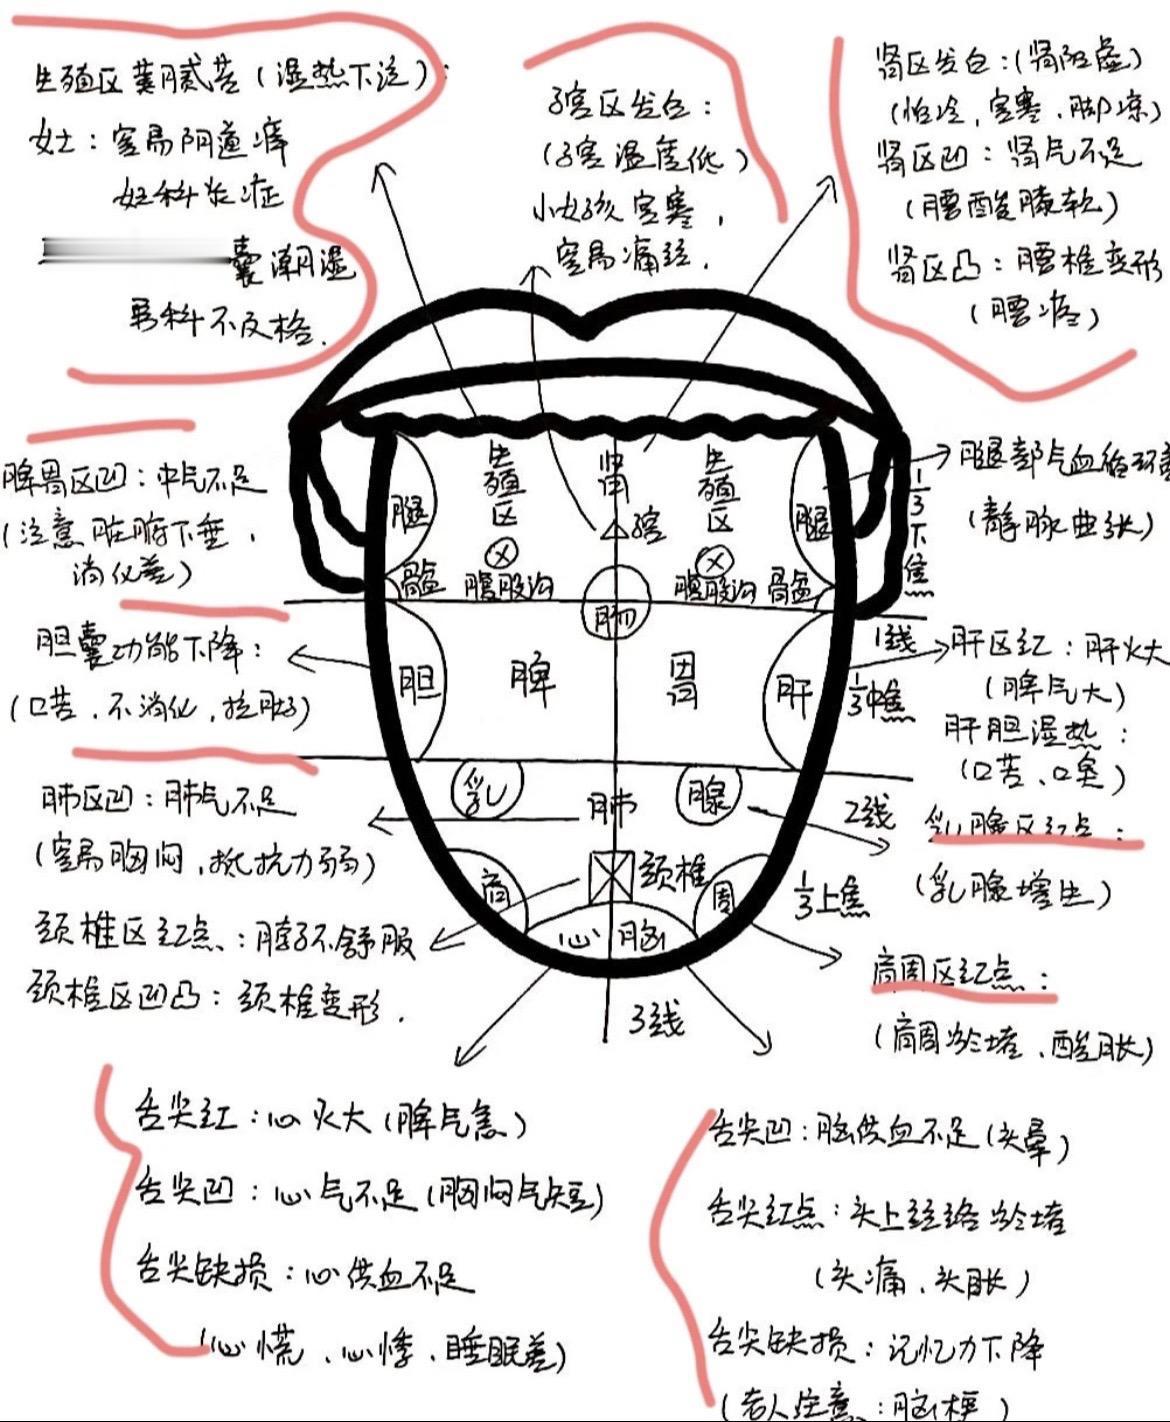 生殖区黄腻苔（湿热下注）：
女士：容易阴道痒
妇科炎症
囊潮湿
男科不及格.
子宫区发白：
（子宫温度低）
小女孩宫寒，
容易痛经.
肾区发白：（肾阳虚）
（怕冷，宫寒，脚凉）
肾区凹：肾气不足
（腰酸膝软）
肾区凸：腰椎变形
（腰疼）
脾胃区凹：中气不足
（注意脏腑下垂，
消化差）
胆囊功能下降：
（口苦、不消化，拉肚子）
肺区凹：肺气不足
（容易胸闷，抵抗力弱）
颈椎区红点：脖子不舒服
颈椎区凹凸：颈椎变形.
生殖区
肾
生殖区
腿
子宫
腿
骨盆
腹股沟
腹股沟
骨盆
胆
脾
胃
肝
乳
肺
腺
肩
颈椎
周
心脑
3线
腿部气血循环差
（静脉曲张）
1/3下焦
1线
肝区红：肝火大
（脾气大）
1/3中焦
肝胆湿热：
（口苦、口臭）
2线
乳腺区红点：
（乳腺增生）
1/3上焦
肩周区红点：
（肩周淤堵、酸胀）
舌尖红：心火大（脾气急）
舌尖凹：心气不足（胸闷气短）
舌尖缺损：心供血不足
（心慌、心悸、睡眠差）
舌尖凹：脑供血不足（头晕）
舌尖红点：头上经络淤堵
（头痛、头胀）
舌尖缺损：记忆力下降
（老人注意：脑梗）